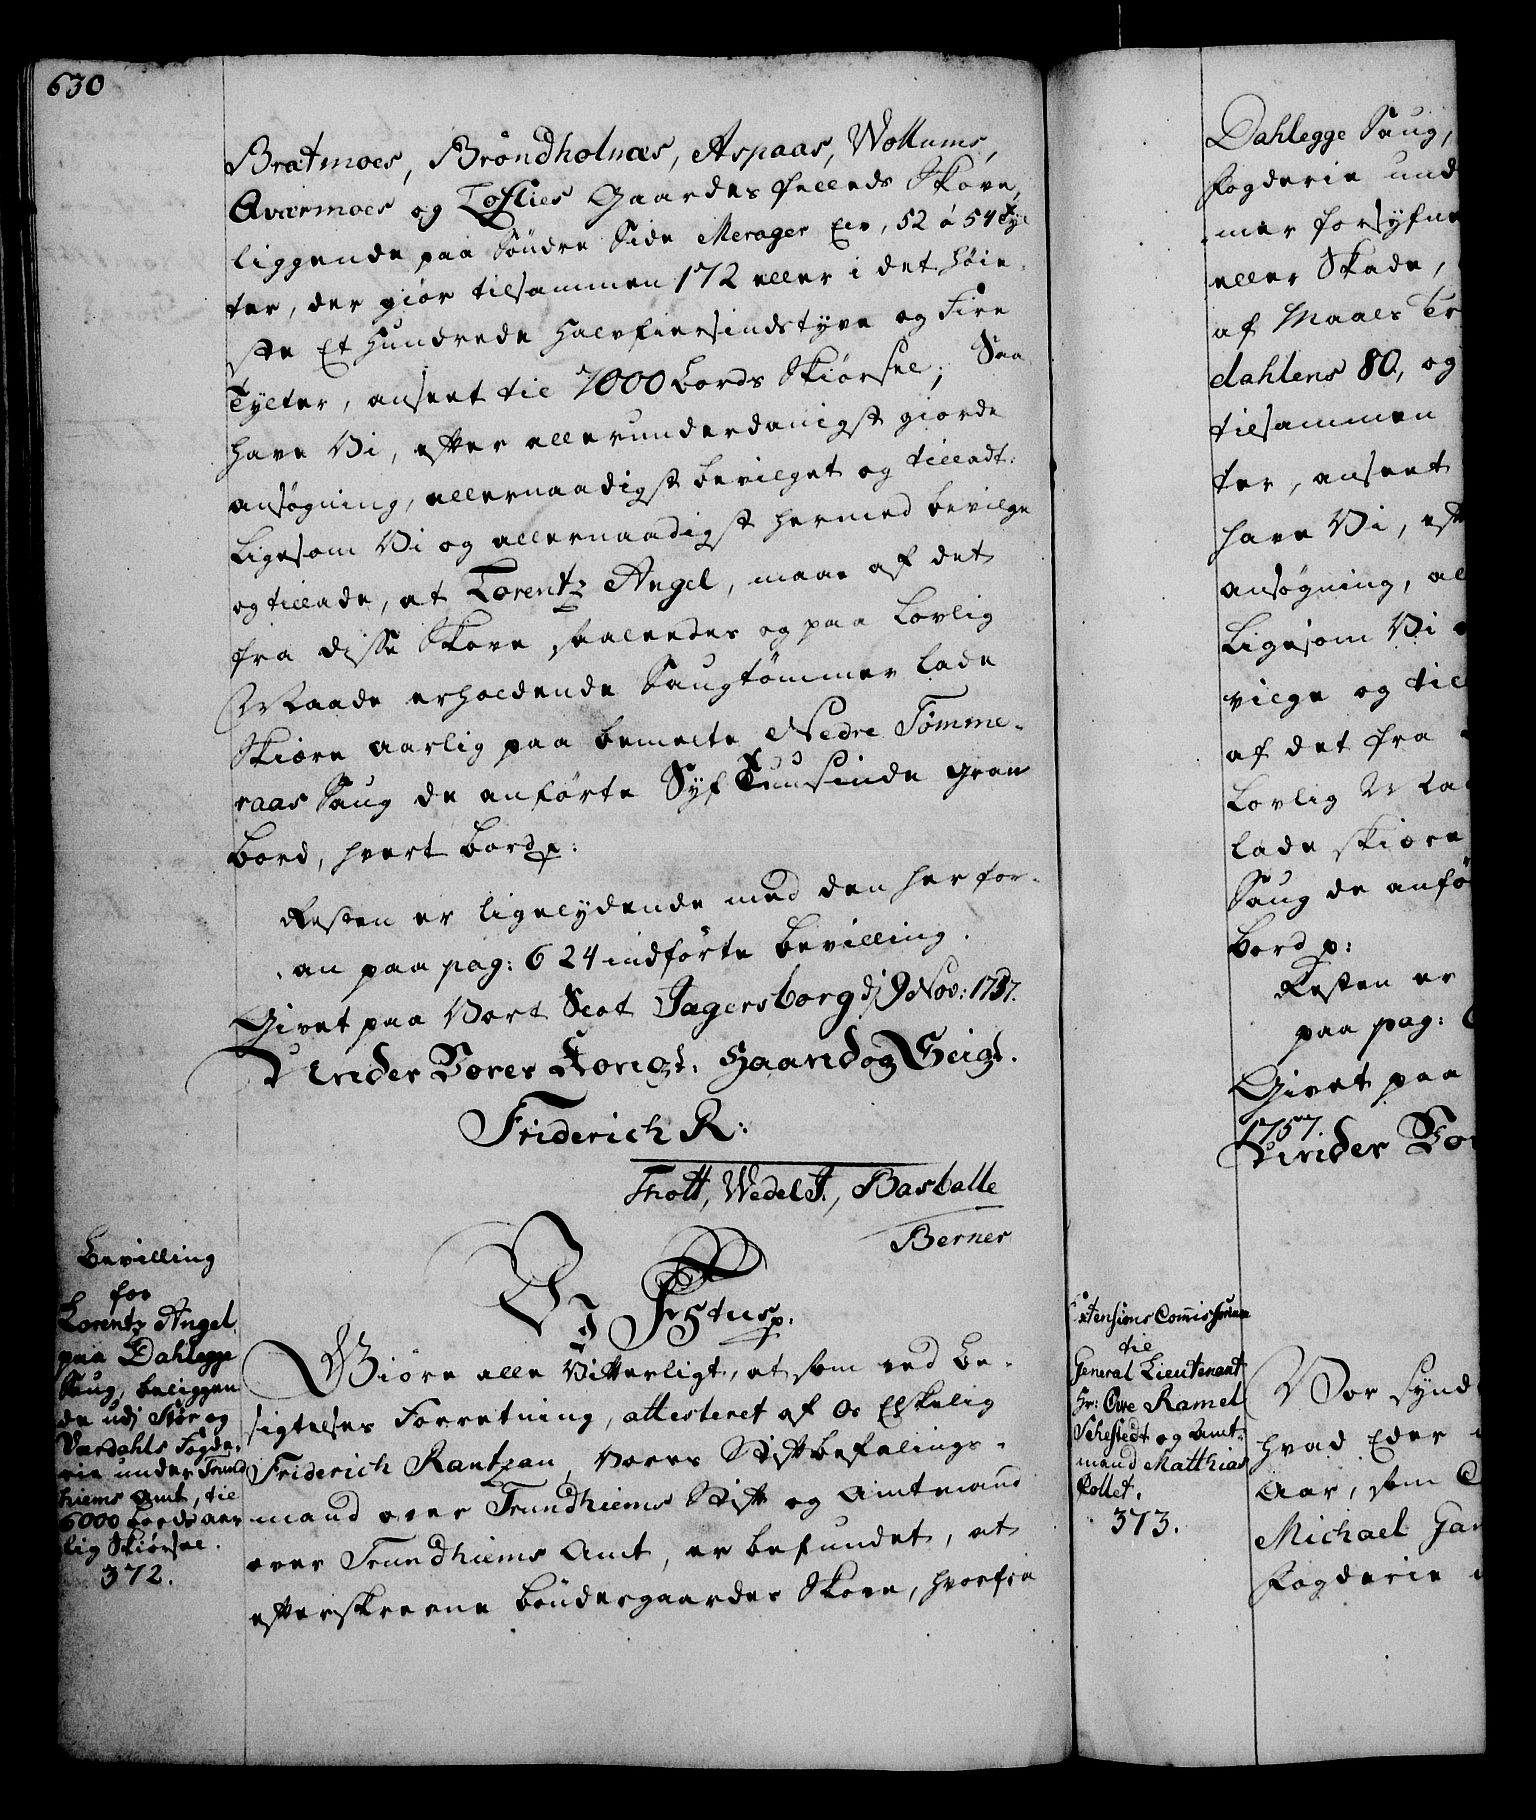 630
Bratmoes, Bröndholmes, Aspaas, Wollums,
Qværmoes og Loflies Gaardes fælleds Skove,
liggende paa Söndre Side Merager Elv, 52 á 54 Tyl
ter, der giör tilsammen 172 eller i det höie-
ste Et Hundrede halvfiersindstyve og Fire
Tylter, anseet til 7000 Bords Skiörsel; Saa
have Vi, efter allerunderdanigst giorde
ansögning, allernaadigst bevilget og tilladt:
Ligesom Vi og allernaadigst hermed bevilge
og tillade, at Lorentz Angel, maae af det
fra disse Skove saaledes og paa Lovlig
Maade erholdende Saugtömmer lade
Skiære aarlig paa bemelte Nedre Tömme-
raas Saug de anförte Syf Tuusinde gran
Bord, hvert Bord p:
Resten er ligelydende med den her for-
an paa pag: 624 indförte Bevilling.
Givet paa Vort Slot Jagersborg dj 9 Nov: 1757.
Under Vores Kongl. Haand og Seigl.
Friderich R:
Thott, Wedel J., Barballe
Berner
Bevilling
for
Lorentz Angel
paa Dahlegge
Saug, beliggen
de udj Stör og
Værdahls Fogde-
rie under Trund
hiems Amt, til
6000 Bords aar
lig Skiörsel.
372.
Vj Fr5tus p.
Giöre alle Vitterligt, at som ved Be-
sigtelses Forretning, attesteret af Os Elskelig
Friderich Rantzau, Vores Stiftbefalings-
mand over Trundhiems Stift og Amtmand
over Trundhiems Amt, er befundet, at
efterskrevne Böndergaardes Skove, hvorfra
Dahlegge Saug,
Fogderie und
mer forsyfne
eller Skade,
af Maals Tr
dahlens 80, og
tilsammen
ter, anseet
have Vi, eft
ansögning, al
Ligesom Vi
vilge og till
af det fra
Lovlig Maa
lade skiære
Saug de anfö
Bord p:
Resten er
paa pag: 6
Givet paa
1757.
Under Vor
Extensions Commissorium
til
General Lieutenant
Hr: Ove Ramel
Sehestedt og Amt-
mand Matthias
Collet.
373.
Vor synd
hvad Eder
Aar, som
Michael Gar
Fogderie